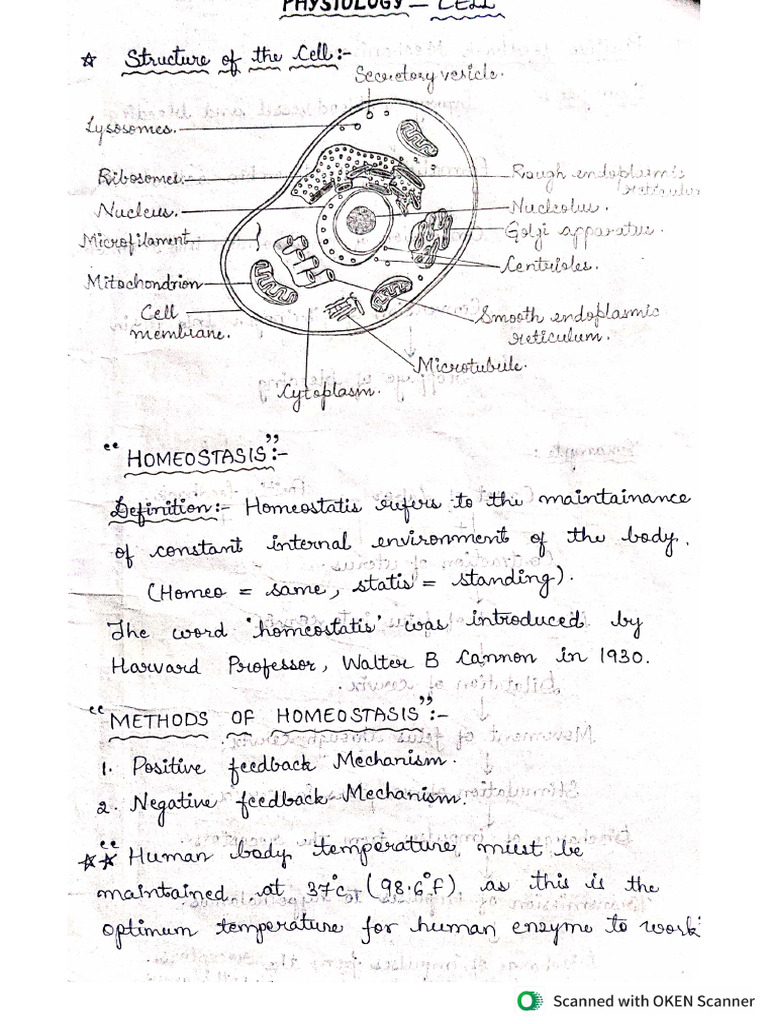 PHYSIOLOGY - CELL
☆ Structure of the Cell:-
Secretory vesicle.
Lysosomes.
Ribosomes.
Rough endoplasmic
reticulum
Nucleus.
Nucleolus.
Microfilament
Golgi apparatus.
Centrioles.
Mitochondrion
Cell
membrane.
Smooth endoplasmic
reticulum.
Microtubule.
Cytoplasm.
"HOMEOSTASIS":-
Definition:- Homeostatis refers to the maintainance
of constant internal environment of the body.
(Homeo = same, statis = standing).
The word 'homeostatis' was introduced by
Harvard Professor, Walter B Cannon in 1930.
"METHODS OF HOMEOSTASIS":-
1. Positive feedback Mechanism.
2. Negative feedback Mechanism.
☆☆ "Human body temperature must be
maintained at 37°c (98.6°f) as this is the
optimum temperature for human enzyme to work"
Scanned with OKEN Scanner